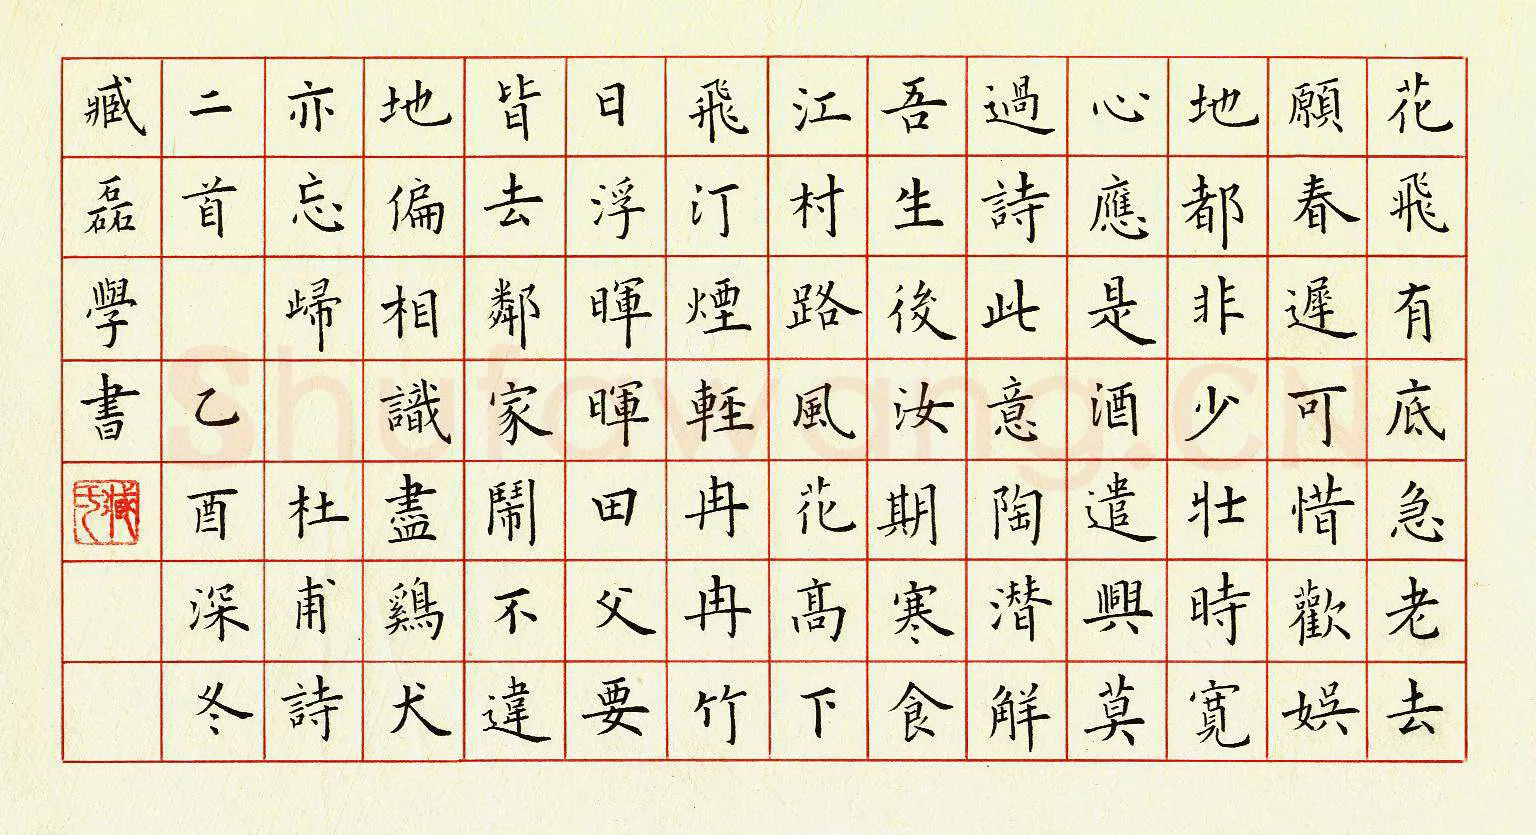 花飛有底急老去
願春遲可惜歡娛
地都非少壯時寬
心應是酒遣興莫
過詩此意陶潛解
吾生後汝期寒食
江村路風花高下
飛汀煙輕冉冉竹
日浮暉暉田父要
皆去鄰家鬧不違
地偏相識盡鷄犬
亦忘歸 杜甫詩
二首 乙酉深冬
臧磊學書
臧氏
Shufawang.CN